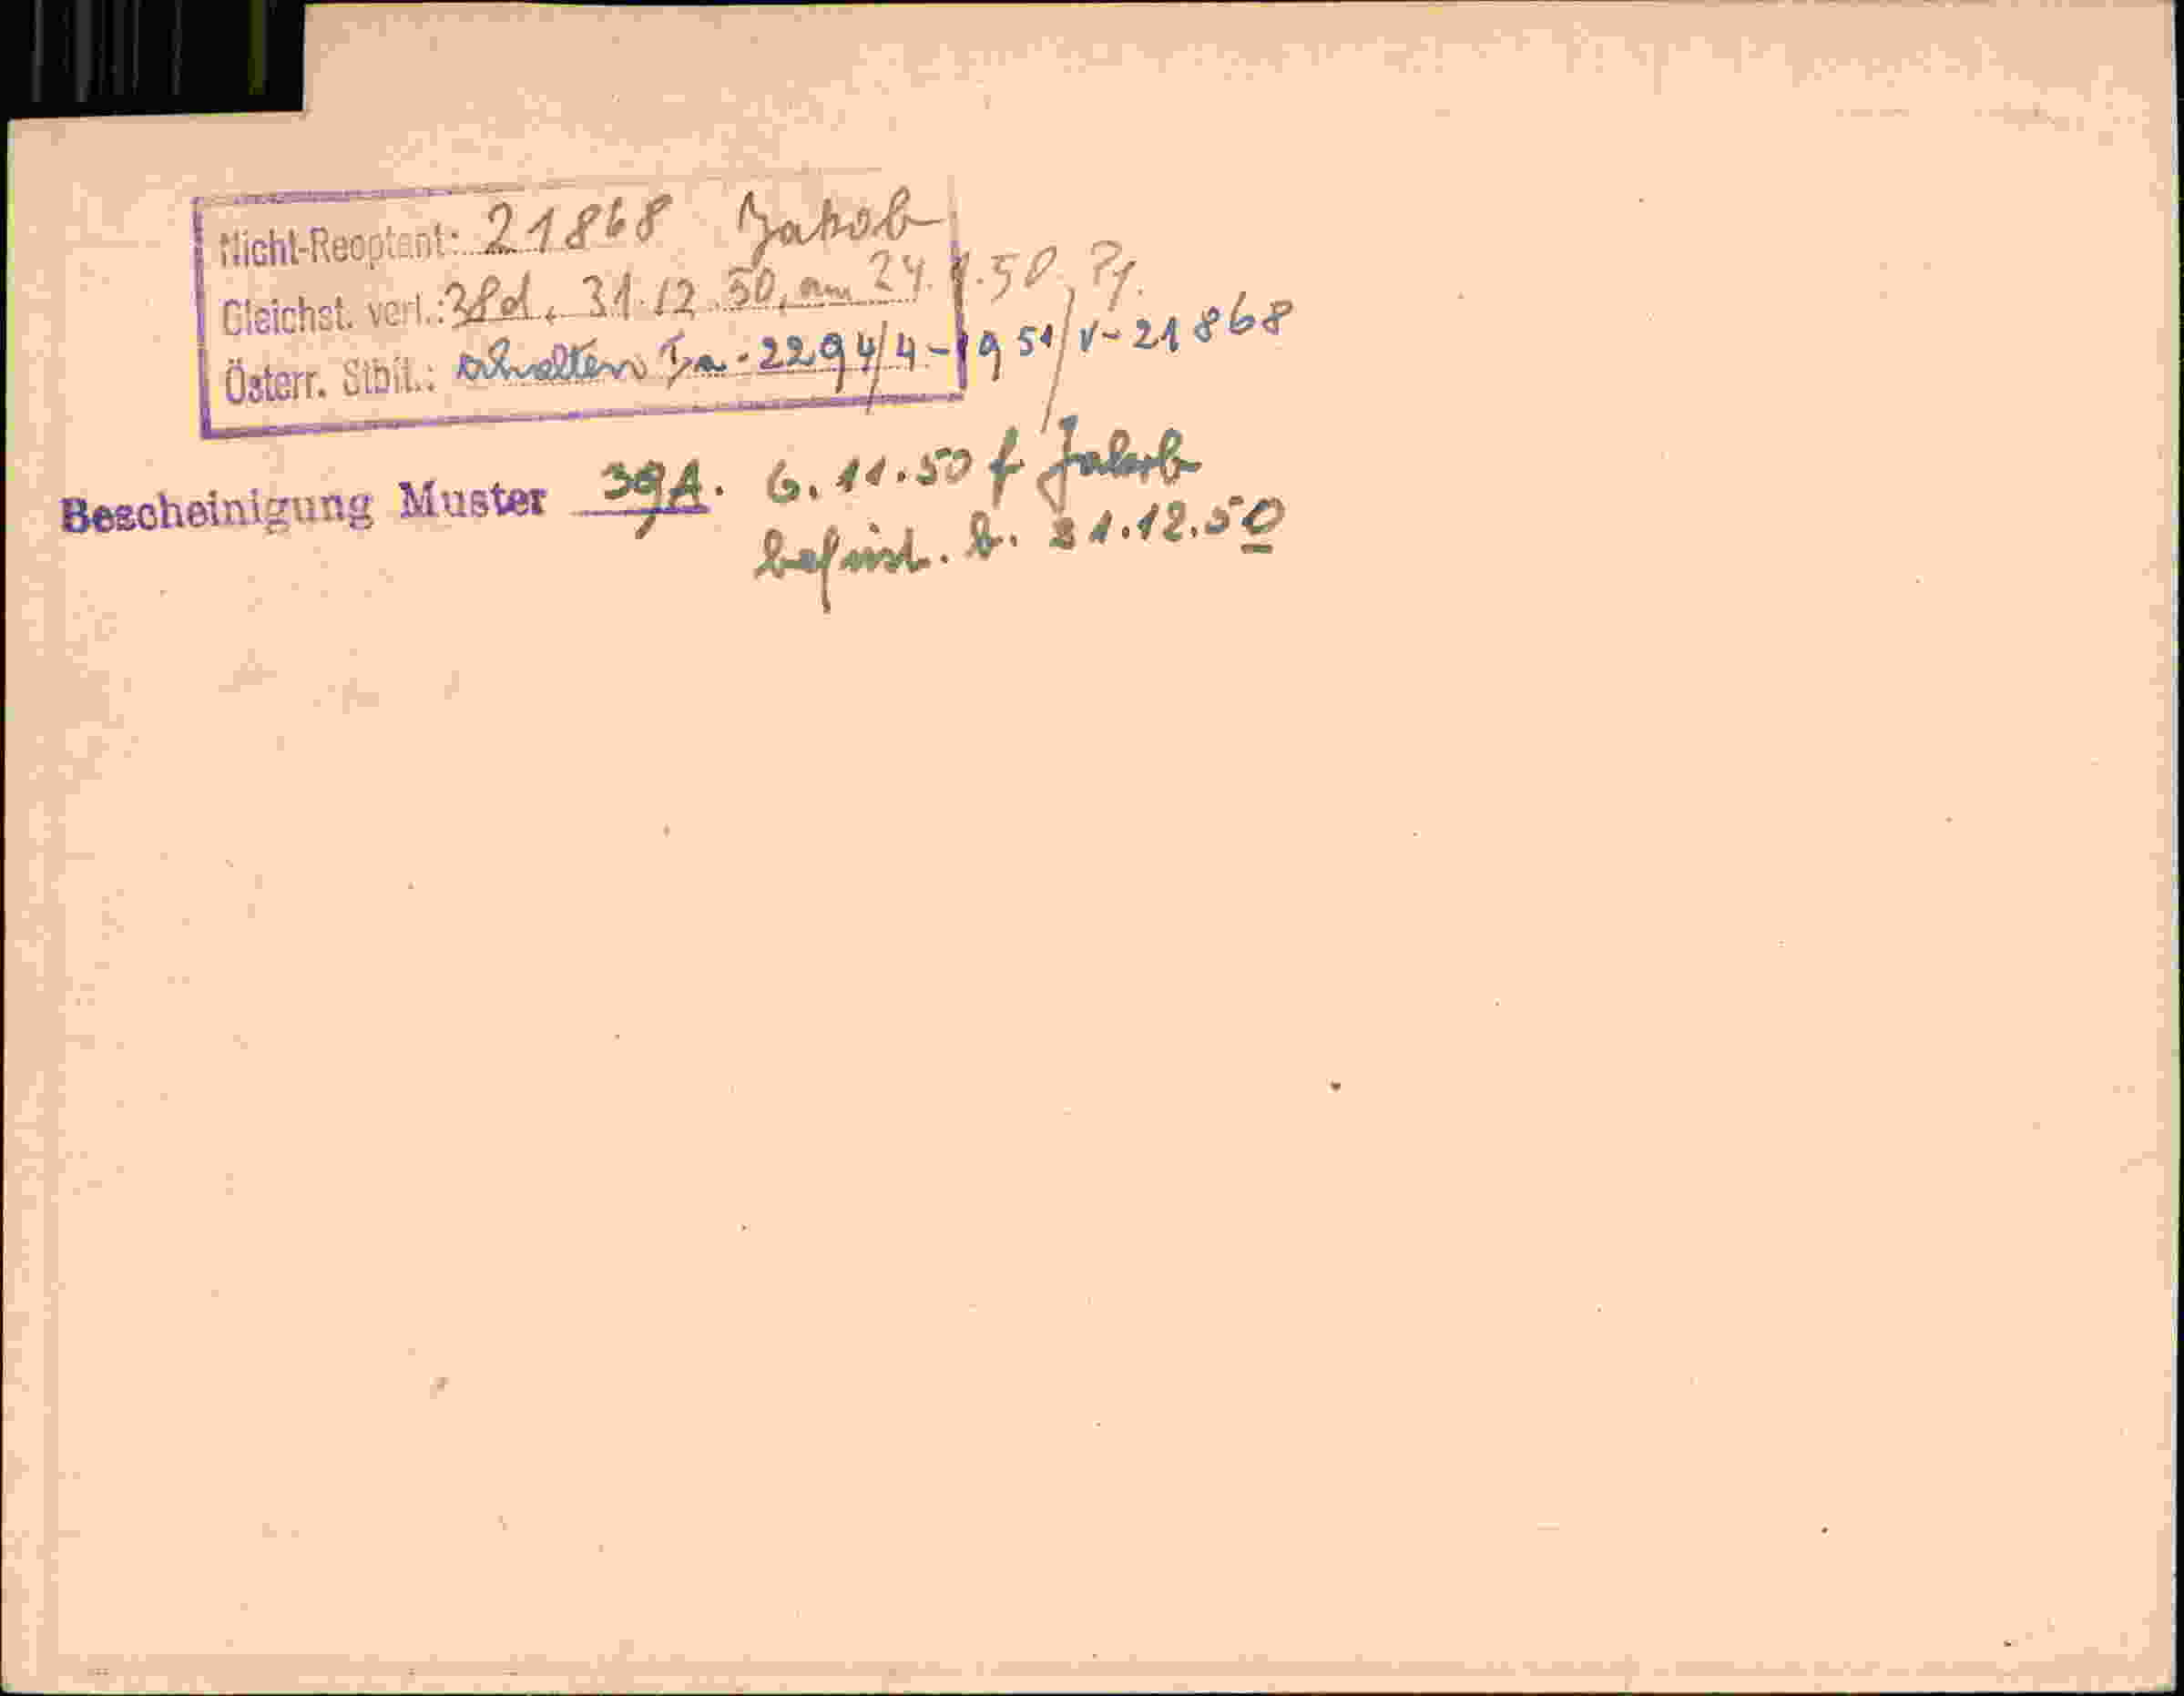 Nicht-Reoptant: 21868 Jakob
Gleichst. verl.: 38d, 31.12.50, am 24.1.50, Pf.
Österr. Stbü.: erhalten Ia-2294/4-1951/V-21868
Bescheinigung Muster 39A. 6.11.50 f Jakob
befrist. b. 31.12.50